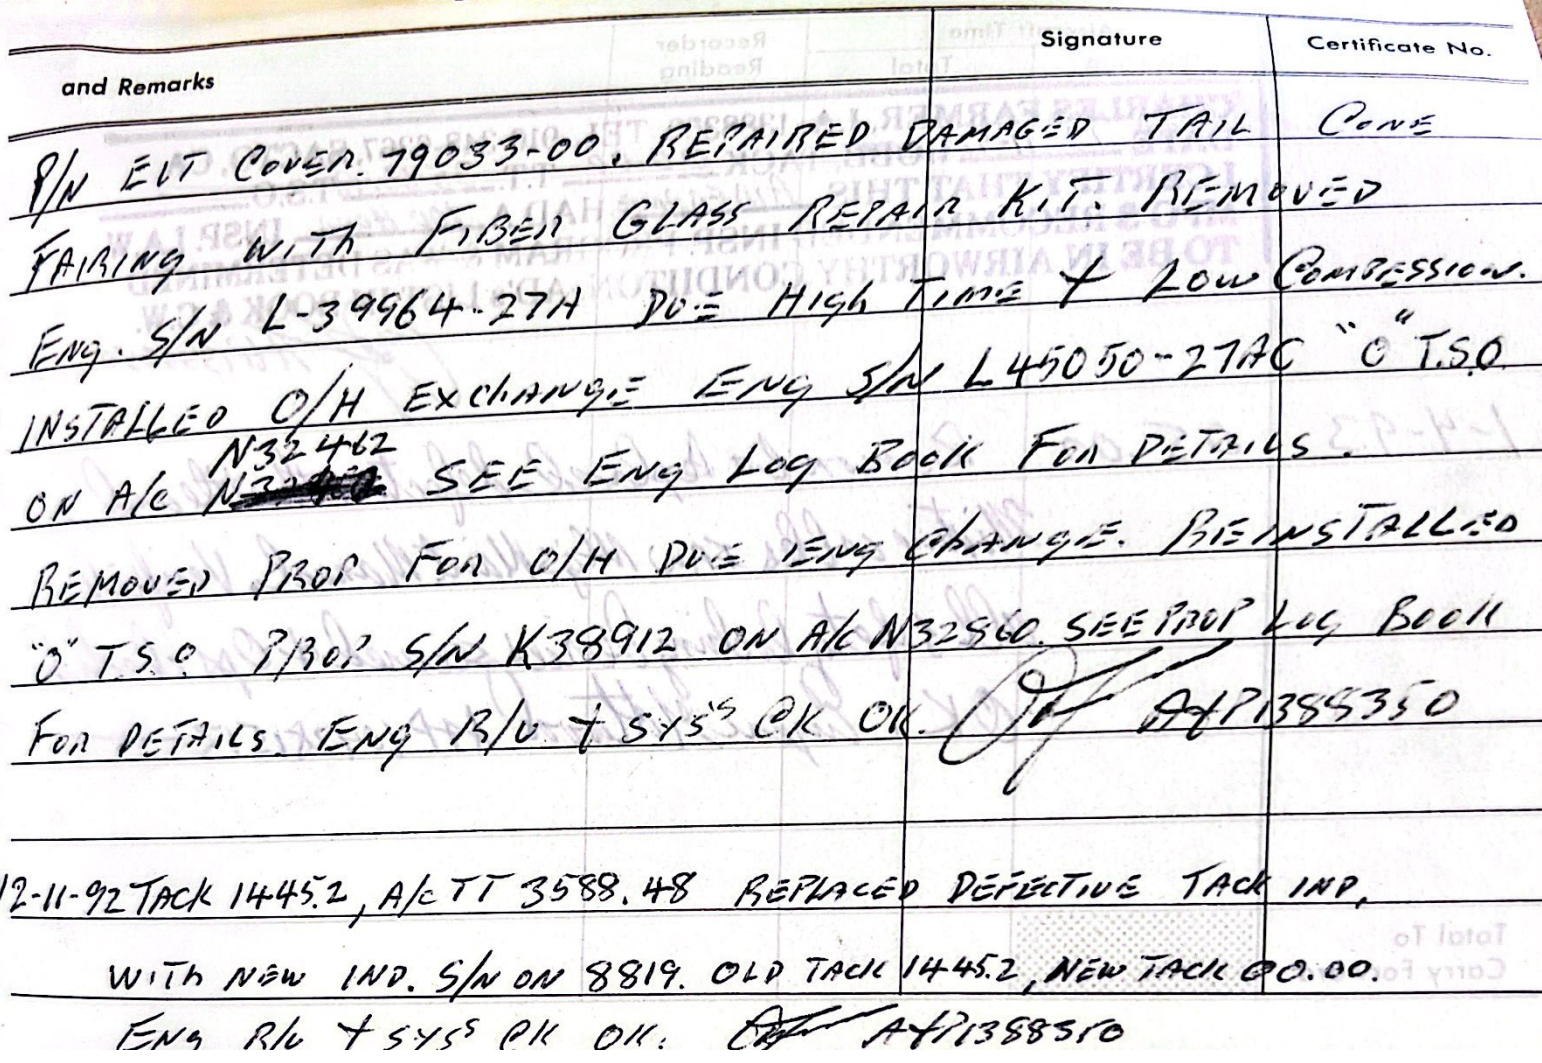 and Remarks Signature Certificate No.
P/N EVT COVER. 79033-00. REPAIRED DAMAGED TAIL CONE
FAIRING WITH FIBER GLASS REPAIR KIT. REMOVED
ENG. S/N L-39964-27A DUE HIGH TIME + LOW COMPESSION.
INSTALLED O/H EXCHANGE ENG S/N L45050-27AC "0" T.S.O.
N32462
ON A/C SEE ENG LOG BOOK FOR DETAILS.
REMOVED PROP FOR O/H DUE ENG CHANGE. REINSTALLED
"0" T.S.O PROP S/N K38912 ON A/C N32860. SEE PROP LOG BOOK
FOR DETAILS. ENG R/U + SYS'S CK OK. A+P1388350
12-11-92 TACK 1445.2, A/C TT 3588.48 REPLACED DEFECTIVE TACK IND,
WITH NEW IND. S/N ON 8819. OLD TACK 1445.2, NEW TACK 00.00.
ENG R/U + SYS'S CK OK. A+P1388350